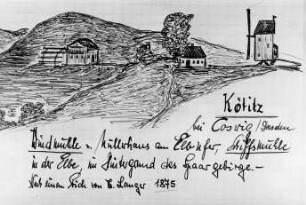 Kötitz
bei Coswig/Dresden
Windmühle u. Müllerhaus am Elbufer, Schiffsmühle
in der Elbe, im Hintergrund das Spaargebirge.—
Nach einem Stich von E. Langer 1875